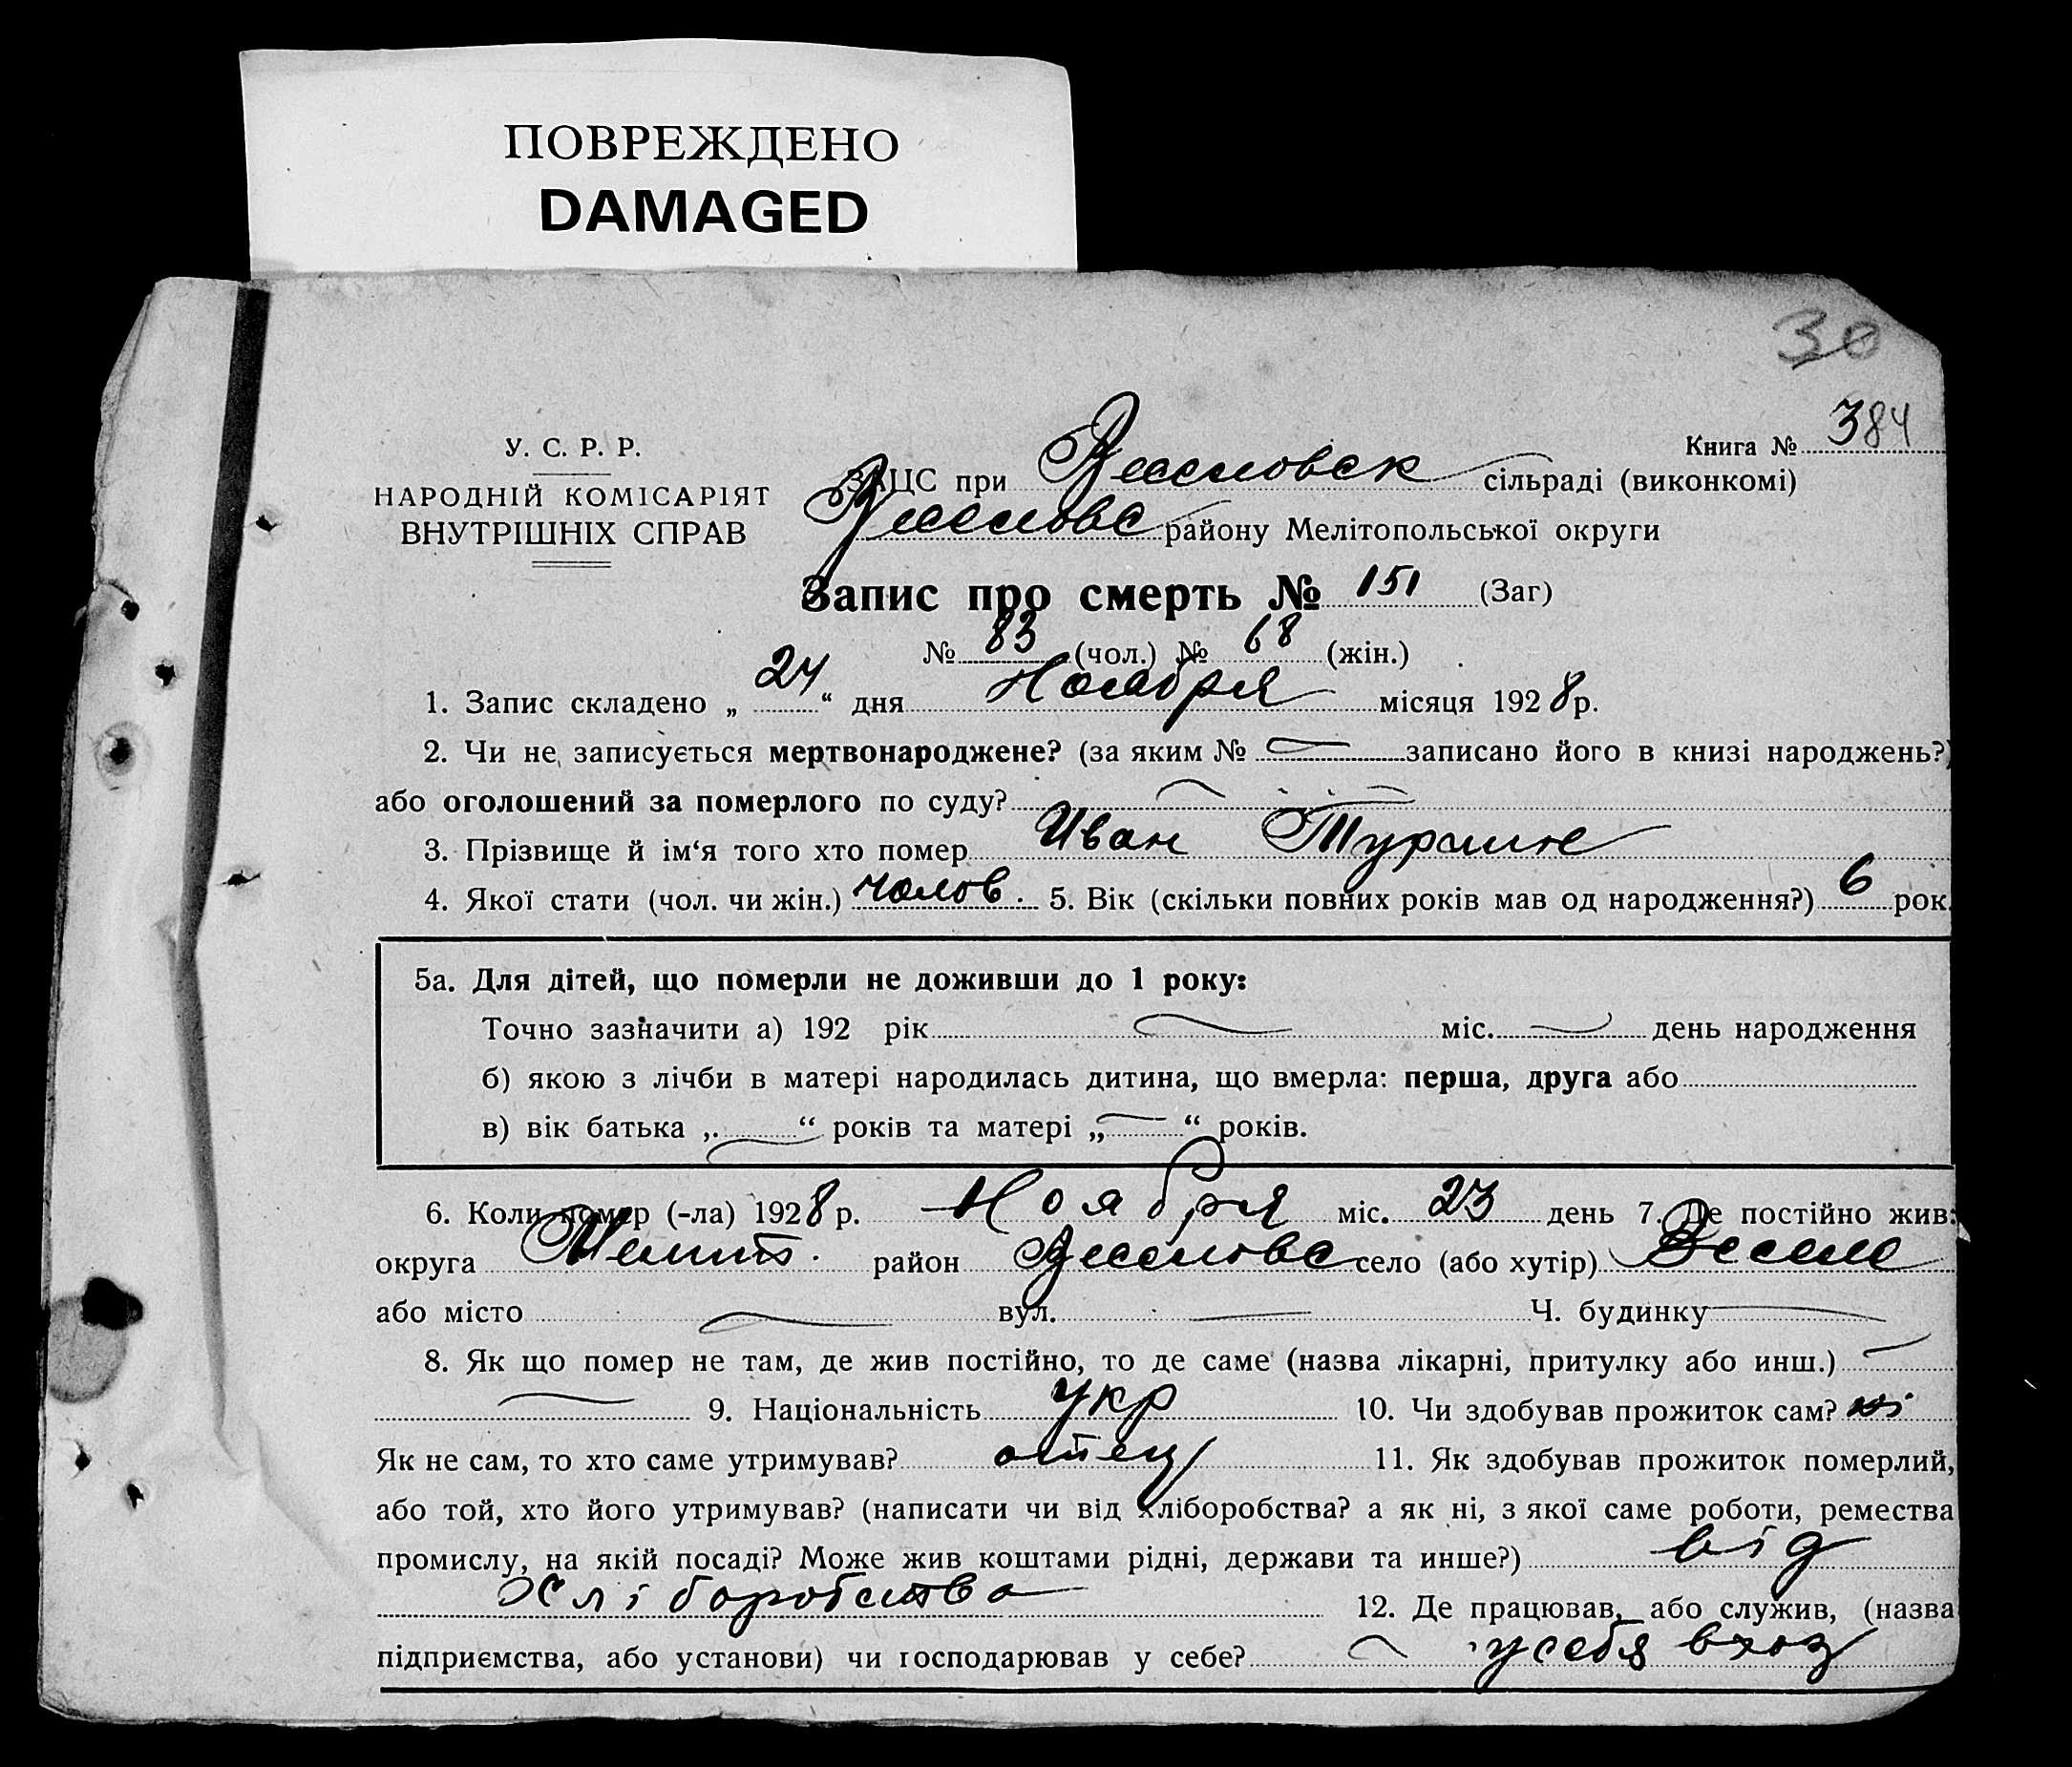 ПОВРЕЖДЕНО
DAMAGED
30
Книга № 384
У. С. Р. Р.
НАРОДНІЙ КОМІСАРІЯТ
ВНУТРІШНІХ СПРАВ
ЗАЦС при Веселовск сільраді (виконкомі)
Веселовс району Мелітопольської округи
Запис про смерть № 151 (Заг)
№ 83 (чол.) № 68 (жін.)
1. Запис складено „ 24 “ дня Ноября місяця 1928 р.
2. Чи не записується мертвонароджене? (за яким № записано його в книзі народжень?)
або оголошений за померлого по суду?
3. Прізвище й ім‘я того хто помер Иван
4. Якої стати (чол. чи жін.) чолов. 5. Вік (скільки повних років мав од народження?) 6 рок.
5а. Для дітей, що померли не доживши до 1 року:
Точно зазначити а) 192 рік міс. день народження
б) якою з лічби в матері народилась дитина, що вмерла: перша, друга або
в) вік батька „ “ років та матері „ “ років.
6. Коли помер (-ла) 1928 р. Ноября міс. 23 день 7. Де постійно жив:
округа Мелит. район Веселовс село (або хутір) Веселе
або місто вул. Ч. будинку
8. Як що помер не там, де жив постійно, то де саме (назва лікарні, притулку або инш.)
9. Національність укр 10. Чи здобував прожиток сам? ні
Як не сам, то хто саме утримував? отец 11. Як здобував прожиток померлий,
або той, хто його утримував? (написати чи від хліборобства? а як ні, з якої саме роботи, ремества
промислу, на якій посаді? Може жив коштами рідні, держави та инше?) від
Хліборобства 12. Де працював, або служив, (назва
підприємства, або установи) чи господарював у себе? у себя в хоз